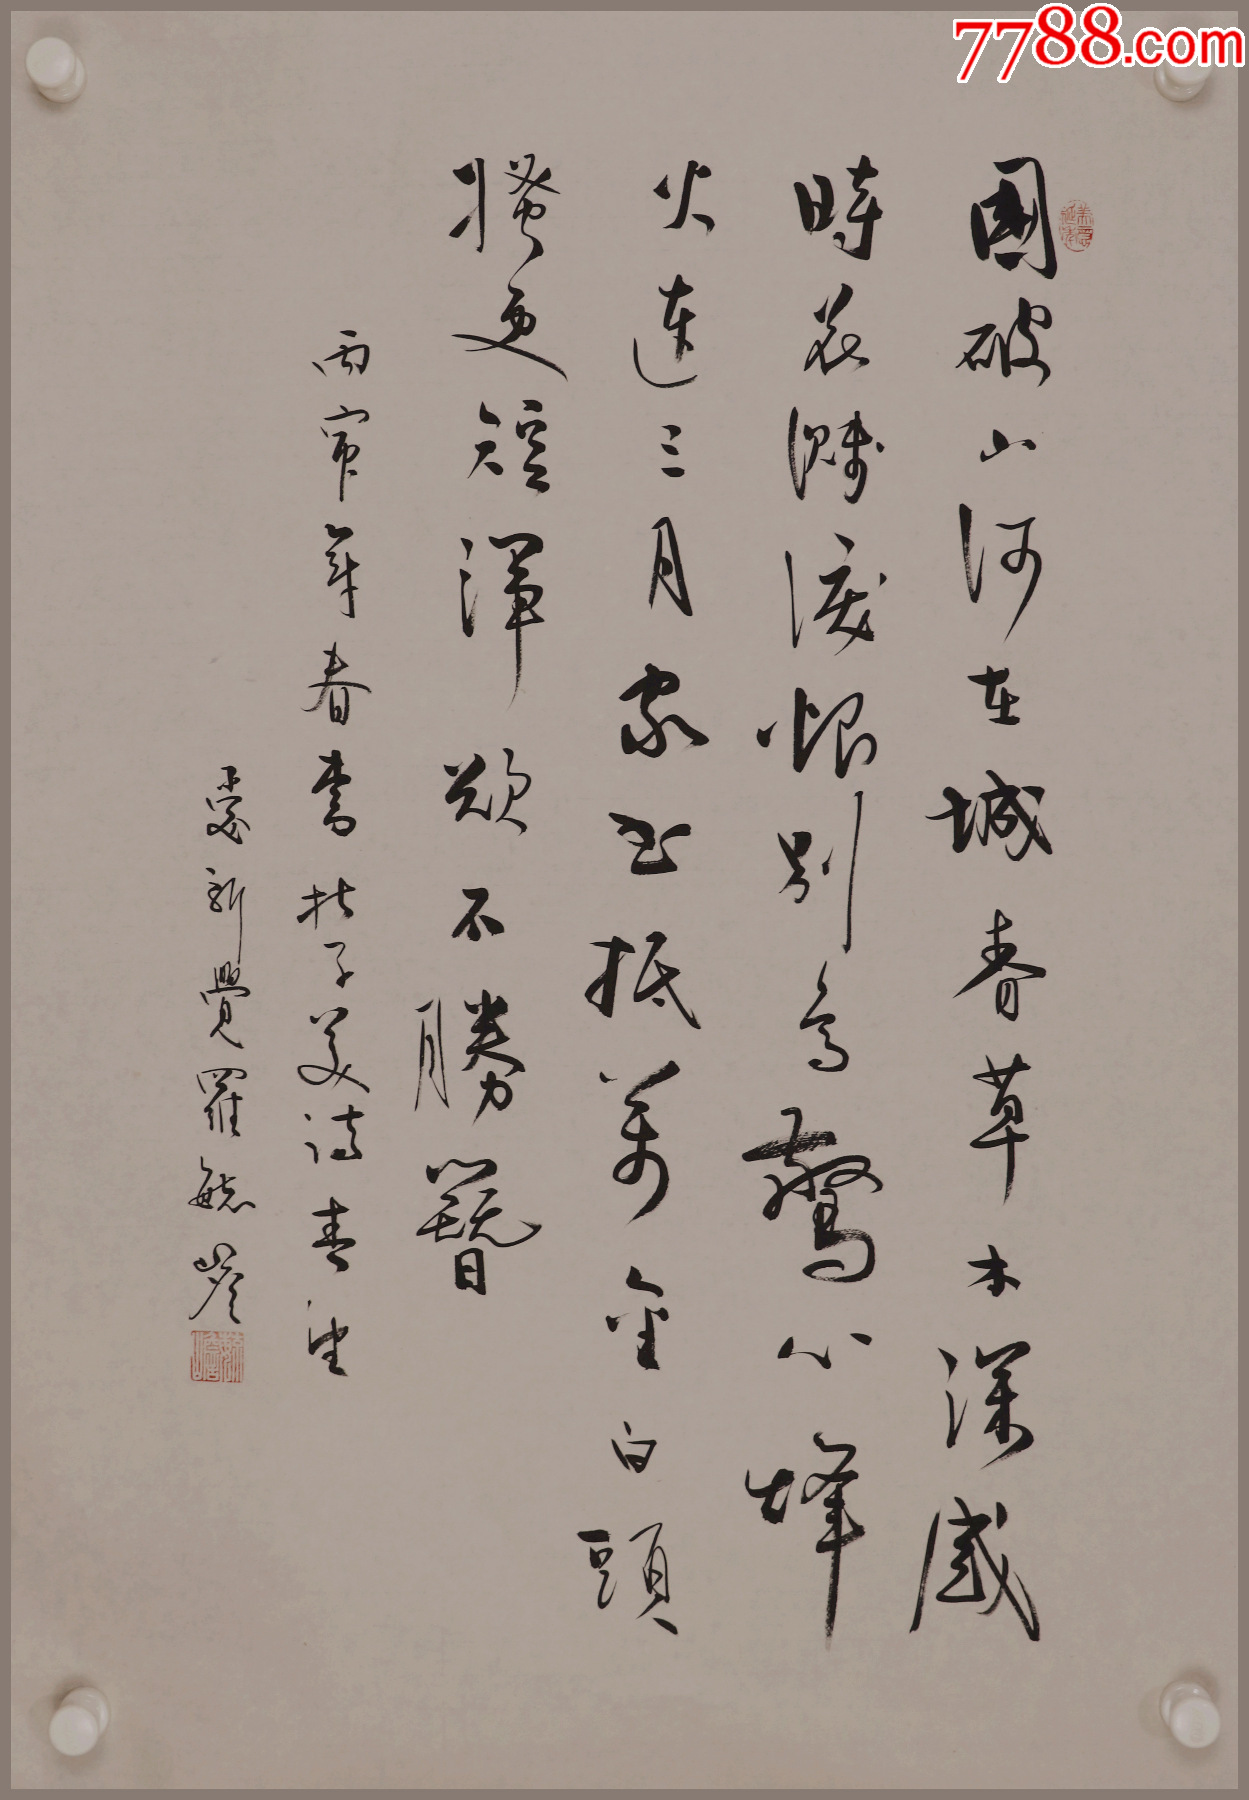 國破山河在城春草木深感
時花濺淚恨別鳥驚心烽
火連三月家書抵萬金白頭
搔更短渾欲不勝簪
丙寅年春書杜子美詩春望
愛新覺羅毓嶦
7788.com